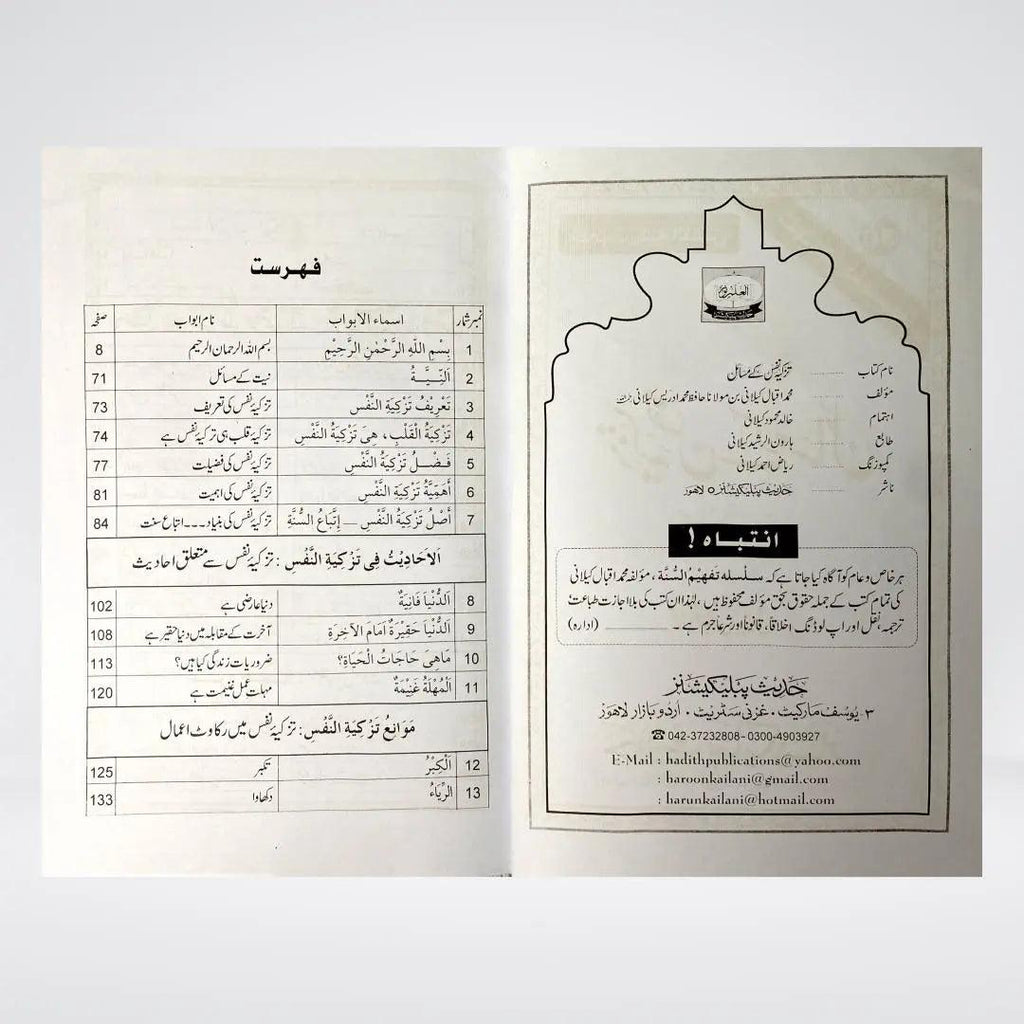 العلم نور
نام کتاب ............ تزکیہ نفس کے مسائل
مؤلف ............ محمد اقبال کیلانی بن مولانا حافظ محمد ادریس کیلانی
اہتمام ............ خالد محمود کیلانی
طابع ............ ہارون الرشید کیلانی
کمپوزنگ ............ ریاض احمد کیلانی
ناشر ............ حدیث پبلیکیشنز ٥ لاهور
انتباہ !
ہر خاص و عام کو آگاہ کیا جاتا ہے کہ سلسلہ تفهیم السُّنة ، مؤلفہ محمد اقبال کیلانی
کی تمام کتب کے جملہ حقوق بحق مؤلف محفوظ ہیں ، لہٰذا ان کتب کی بلا اجازت طباعت ،
ترجمہ ،نقل اور اپ لوڈنگ اخلاقاً، قانوناً اور شرعاً جرم ہے ۔ ____________ (ادارہ)
حدیث پبلیکیشنز
۳- یوسف مارکیٹ ، غزنی سٹریٹ ، اردو بازار لاهور
☎ 042-37232808 - 0300-4903927
E-Mail : hadithpublications@yahoo.com
: haroonkailani@gmail.com
: harunkailani@hotmail.com
فہرست
نمبر شمار اسماء الابواب نام ابواب صفحہ
1 بِسْمِ اللّٰهِ الرَّحْمٰنِ الرَّحِيْمِ بسم اللہ الرحمان الرحیم 8
2 اَلنِّيَّةُ نیت کے مسائل 71
3 تَعْرِيْفُ تَزْكِيَةِ النَّفْسِ تزکیۂ نفس کی تعریف 73
4 تَزْكِيَةُ الْقَلْبِ ، هِيَ تَزْكِيَةُ النَّفْسِ تزکیۂ قلب ہی تزکیۂ نفس ہے 74
5 فَضْلُ تَزْكِيَةِ النَّفْسِ تزکیۂ نفس کی فضیلت 77
6 أَهَمِّيَّةُ تَزْكِيَةِ النَّفْسِ تزکیۂ نفس کی اہمیت 81
7 أَصْلُ تَزْكِيَةِ النَّفْسِ — إِتِّبَاعُ السُّنَّةِ تزکیۂ نفس کی بنیاد ۔۔۔ اتباع سنت 84
اَلْاَحَادِيْثُ فِي تَزْكِيَةِ النَّفْسِ : تزکیۂ نفس سے متعلق احادیث
8 اَلدُّنْيَا فَانِيَةٌ دنیا عارضی ہے 102
9 اَلدُّنْيَا حَقِيْرَةٌ اَمَامَ الْآخِرَةِ آخرت کے مقابلہ میں دنیا حقیر ہے 108
10 مَاهِيَ حَاجَاتُ الْحَيَاةِ؟ ضروریات زندگی کیا ہیں؟ 113
11 اَلْمُهْلَةُ غَنِيْمَةٌ مہلت عمل غنیمت ہے 120
مَوَانِعُ تَزْكِيَةِ النَّفْسِ : تزکیۂ نفس میں رکاوٹ اعمال
12 اَلْكِبْرُ تکبر 125
13 اَلرِّيَاءُ دکھاوا 133